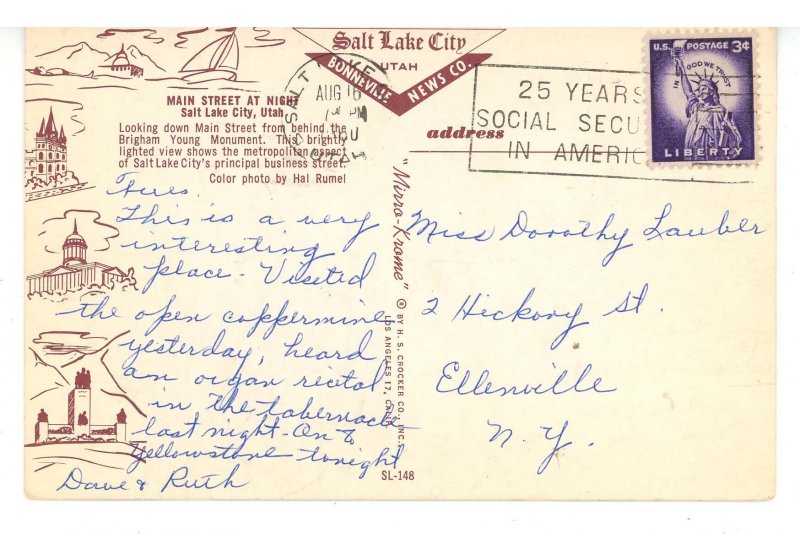 Salt Lake City
UTAH
BONNEVILLE NEWS CO.
MAIN STREET AT NIGHT
Salt Lake City, Utah
Looking down Main Street from behind the
Brigham Young Monument. This brightly
lighted view shows the metropolitan aspect
of Salt Lake City's principal business street.
Color photo by Hal Rumel
SALT LAKE
AUG 16
PM
25 YEARS
SOCIAL SECU
IN AMERIC
U.S. POSTAGE 3¢
IN GOD WE TRUST
LIBERTY
address
Tues.
This is a very
interesting
place - Visited
the open coppermine
yesterday, heard
an organ recital
in the tabernacle
last night - On to
Yellowstone tonight
Dave & Ruth
"Mirro-Krome" ® BY H. S. CROCKER CO., INC.
LOS ANGELES 17, CALIF.
SL-148
Miss Dorothy Lauber
2 Hickory St.
Ellenville
N.Y.